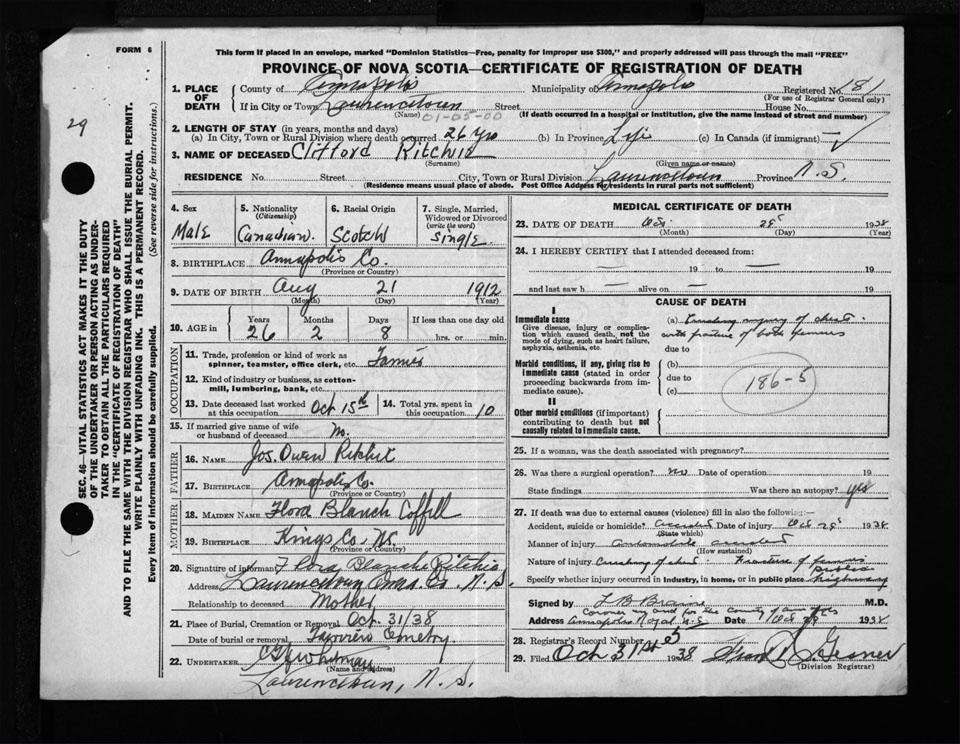 FORM 6
This form if placed in an envelope, marked "Dominion Statistics—Free, penalty for improper use $300," and properly addressed will pass through the mail "FREE"
PROVINCE OF NOVA SCOTIA—CERTIFICATE OF REGISTRATION OF DEATH
29
SEC. 46—VITAL STATISTICS ACT MAKES IT THE DUTY
OF THE UNDERTAKER OR PERSON ACTING AS UNDER-
TAKER TO OBTAIN ALL THE PARTICULARS REQUIRED
IN THE "CERTIFICATE OF REGISTRATION OF DEATH"
AND TO FILE THE SAME WITH THE DIVISION REGISTRAR WHO SHALL ISSUE THE BURIAL PERMIT.
WRITE PLAINLY WITH UNFADING INK. THIS IS A PERMANENT RECORD.
Every item of information should be carefully supplied. (See reverse side for instructions.)
1. PLACE OF DEATH County of Annapolis Municipality of Annapolis Registered No. 181
(For use of Registrar General only)
If in City or Town Lawrencetown Street House No.
(Name) 01-05-00 (If death occurred in a hospital or institution, give the name instead of street and number)
2. LENGTH OF STAY (in years, months and days)
(a) In City, Town or Rural Division where death occurred 26 yrs (b) In Province Life (c) In Canada (if immigrant) —
3. NAME OF DECEASED Clifford Ritchie
(Surname) (Given name or names)
RESIDENCE No. Street City, Town or Rural Division Lawrencetown Province N.S.
(Residence means usual place of abode. Post Office Address for residents in rural parts not sufficient)
4. Sex Male
5. Nationality (Citizenship) Canadian.
6. Racial Origin Scotch
7. Single, Married, Widowed or Divorced (write the word) Single
8. BIRTHPLACE Annapolis Co.
(Province or Country)
9. DATE OF BIRTH Aug 21 1912
(Month) (Day) (Year)
10. AGE in Years 26 Months 2 Days 8 If less than one day old hrs. or min.
OCCUPATION
11. Trade, profession or kind of work as spinner, teamster, office clerk, etc. Farmer
12. Kind of industry or business, as cotton-mill, lumbering, bank, etc.
13. Date deceased last worked at this occupation Oct 15th
14. Total yrs. spent in this occupation 10
15. If married give name of wife or husband of deceased
FATHER
16. NAME Jos. Owen Ritchie
17. BIRTHPLACE Annapolis Co.
(Province or Country)
MOTHER
18. MAIDEN NAME Flora Blanch Coffill
19. BIRTHPLACE Kings Co. NS.
(Province or Country)
20. Signature of informant Flora Blanche Ritchie
Address Lawrencetown Anna. Co. N.S.
Relationship to deceased Mother
21. Place of Burial, Cremation or Removal
Date of burial or removal Oct. 31/38
Fairview Cemetry
22. UNDERTAKER Whitman
(Name and Address)
Lawrencetown, N.S.
MEDICAL CERTIFICATE OF DEATH
23. DATE OF DEATH Oct 28 1938
(Month) (Day) (Year)
24. I HEREBY CERTIFY that I attended deceased from:
— 19 to — 19
and last saw h — alive on — 19
CAUSE OF DEATH
I
Immediate cause
Give disease, injury or complication which caused death, not the mode of dying, such as heart failure, asphyxia, asthenia, etc.
(a) Crushing injury of chest.
with fracture of both femurs
due to
Morbid conditions, if any, giving rise to immediate cause (stated in order proceeding backwards from immediate cause).
(b)
due to
(c)
186-5
II
Other morbid conditions (if important) contributing to death but not causally related to immediate cause.
25. If a woman, was the death associated with pregnancy?
26. Was there a surgical operation? no Date of operation 19
State findings Was there an autopsy? yes
27. If death was due to external causes (violence) fill in also the following:—
Accident, suicide or homicide? Accident Date of injury Oct 28 1938
(State which)
Manner of injury Automobile accident
(How sustained)
Nature of injury Crushing of chest. Fracture of femurs
Specify whether injury occurred in industry, in home, or in public place Public highway
Signed by L B Braine M.D.
Coroner in and for the County of Annapolis
Address Annapolis Royal N.S. Date Oct 1938
28. Registrar's Record Number 5
29. Filed Oct 31st 1938 Gesner
(Division Registrar)